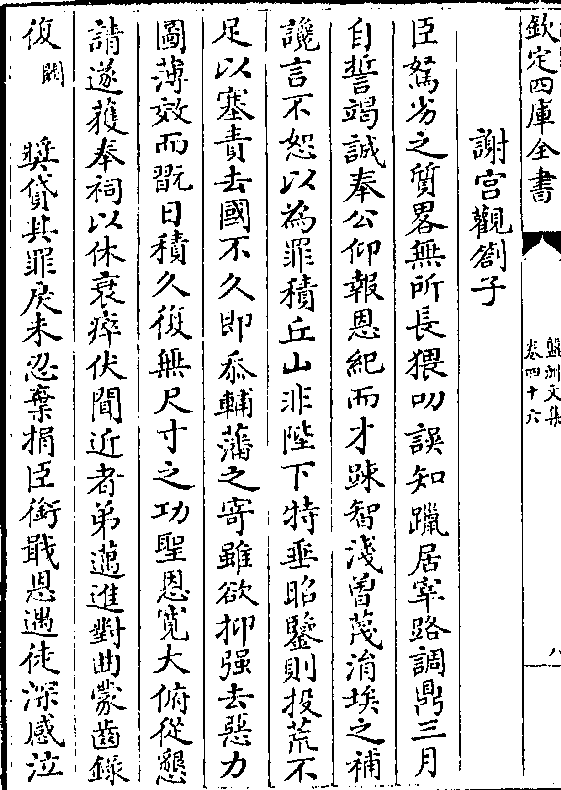 欽定四庫全書
盤洲文集
卷四十六
八
謝宮觀劄子
臣駑劣之質畧無所長猥叨誤知躐居宰路調鼎三月
自誓竭誠奉公仰報恩紀而才踈智淺曾蔑涓埃之補
讒言不恕以為罪積丘山非陛下特垂昭鑒則投荒不
足以塞責去國不久即忝輔藩之寄雖欲抑强去惡力
圖薄效而翫日積久復無尺寸之功聖恩寛大俯從懇
請遂獲奉祠以休衰瘁伏聞近者弟邁進對曲蒙齒錄
復闕奬貸其罪戾未忍棄捐臣銜戢恩遇徒深感泣